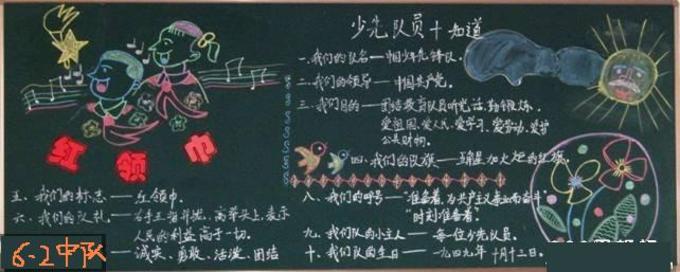 少先队员十知道
一、我们的队名——中国少年先锋队。
二、我们的领导——中国共产党。
三、我们目的——团结教育队员听党话，勤锻炼，
爱祖国，爱人民，爱学习，爱劳动，爱护
公共财物。
四、我们的队旗——五角星加火炬的红旗。
红领巾
五、我们的标志——红领巾。
六、我们的队礼——右手五指并拢，高举头上，表示
人民的利益高于一切。
——诚实、勇敢、活泼、团结
八、我们的呼号——"准备着，为共产主义事业而奋斗"
"时刻准备着"
九、我们队的小主人——每一位少先队员。
十、我们队的生日——一九四九年十月十三日。
6-2中队